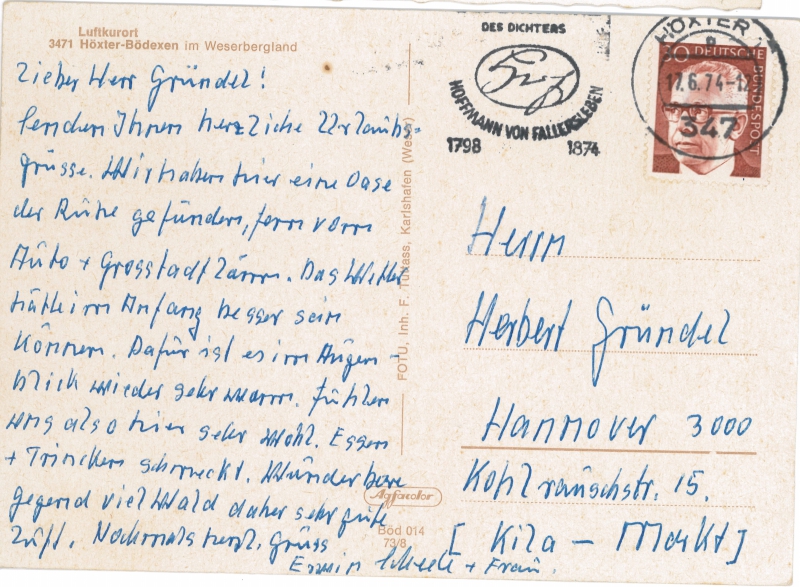 Luftkurort
3471 Höxter-Bödexen im Weserbergland
Lieber Herr Gründel!
Senden Ihnen herzliche Urlaubs-
grüsse. Wir haben hier eine Oase
der Ruhe gefunden, fern vom
Auto + Grosstadtlärm. Das Wetter
hätte im Anfang besser sein
können. Dafür ist es im Augen-
blick wieder sehr warm. Fühlen
uns also hier sehr wohl. Essen
+ Trinken schmeckt. Wunderbare
gegend viel Wald daher sehr gute
Luft. Nochmals herzl. grüss
Erwin + Frau.
FOTU, Inh. F. Tuttass, Karlshafen (Weser)
Agfacolor
Böd 014
73/8
DES DICHTERS
HOFFMANN VON FALLERSLEBEN
1798 1874
HÖXTER 1
a
17.6.74-12
347
30 DEUTSCHE BUNDESPOST
Herrn
Herbert Gründel
Hannover 3000
Kohlrauschstr. 15.
[ Kila - Markt ]